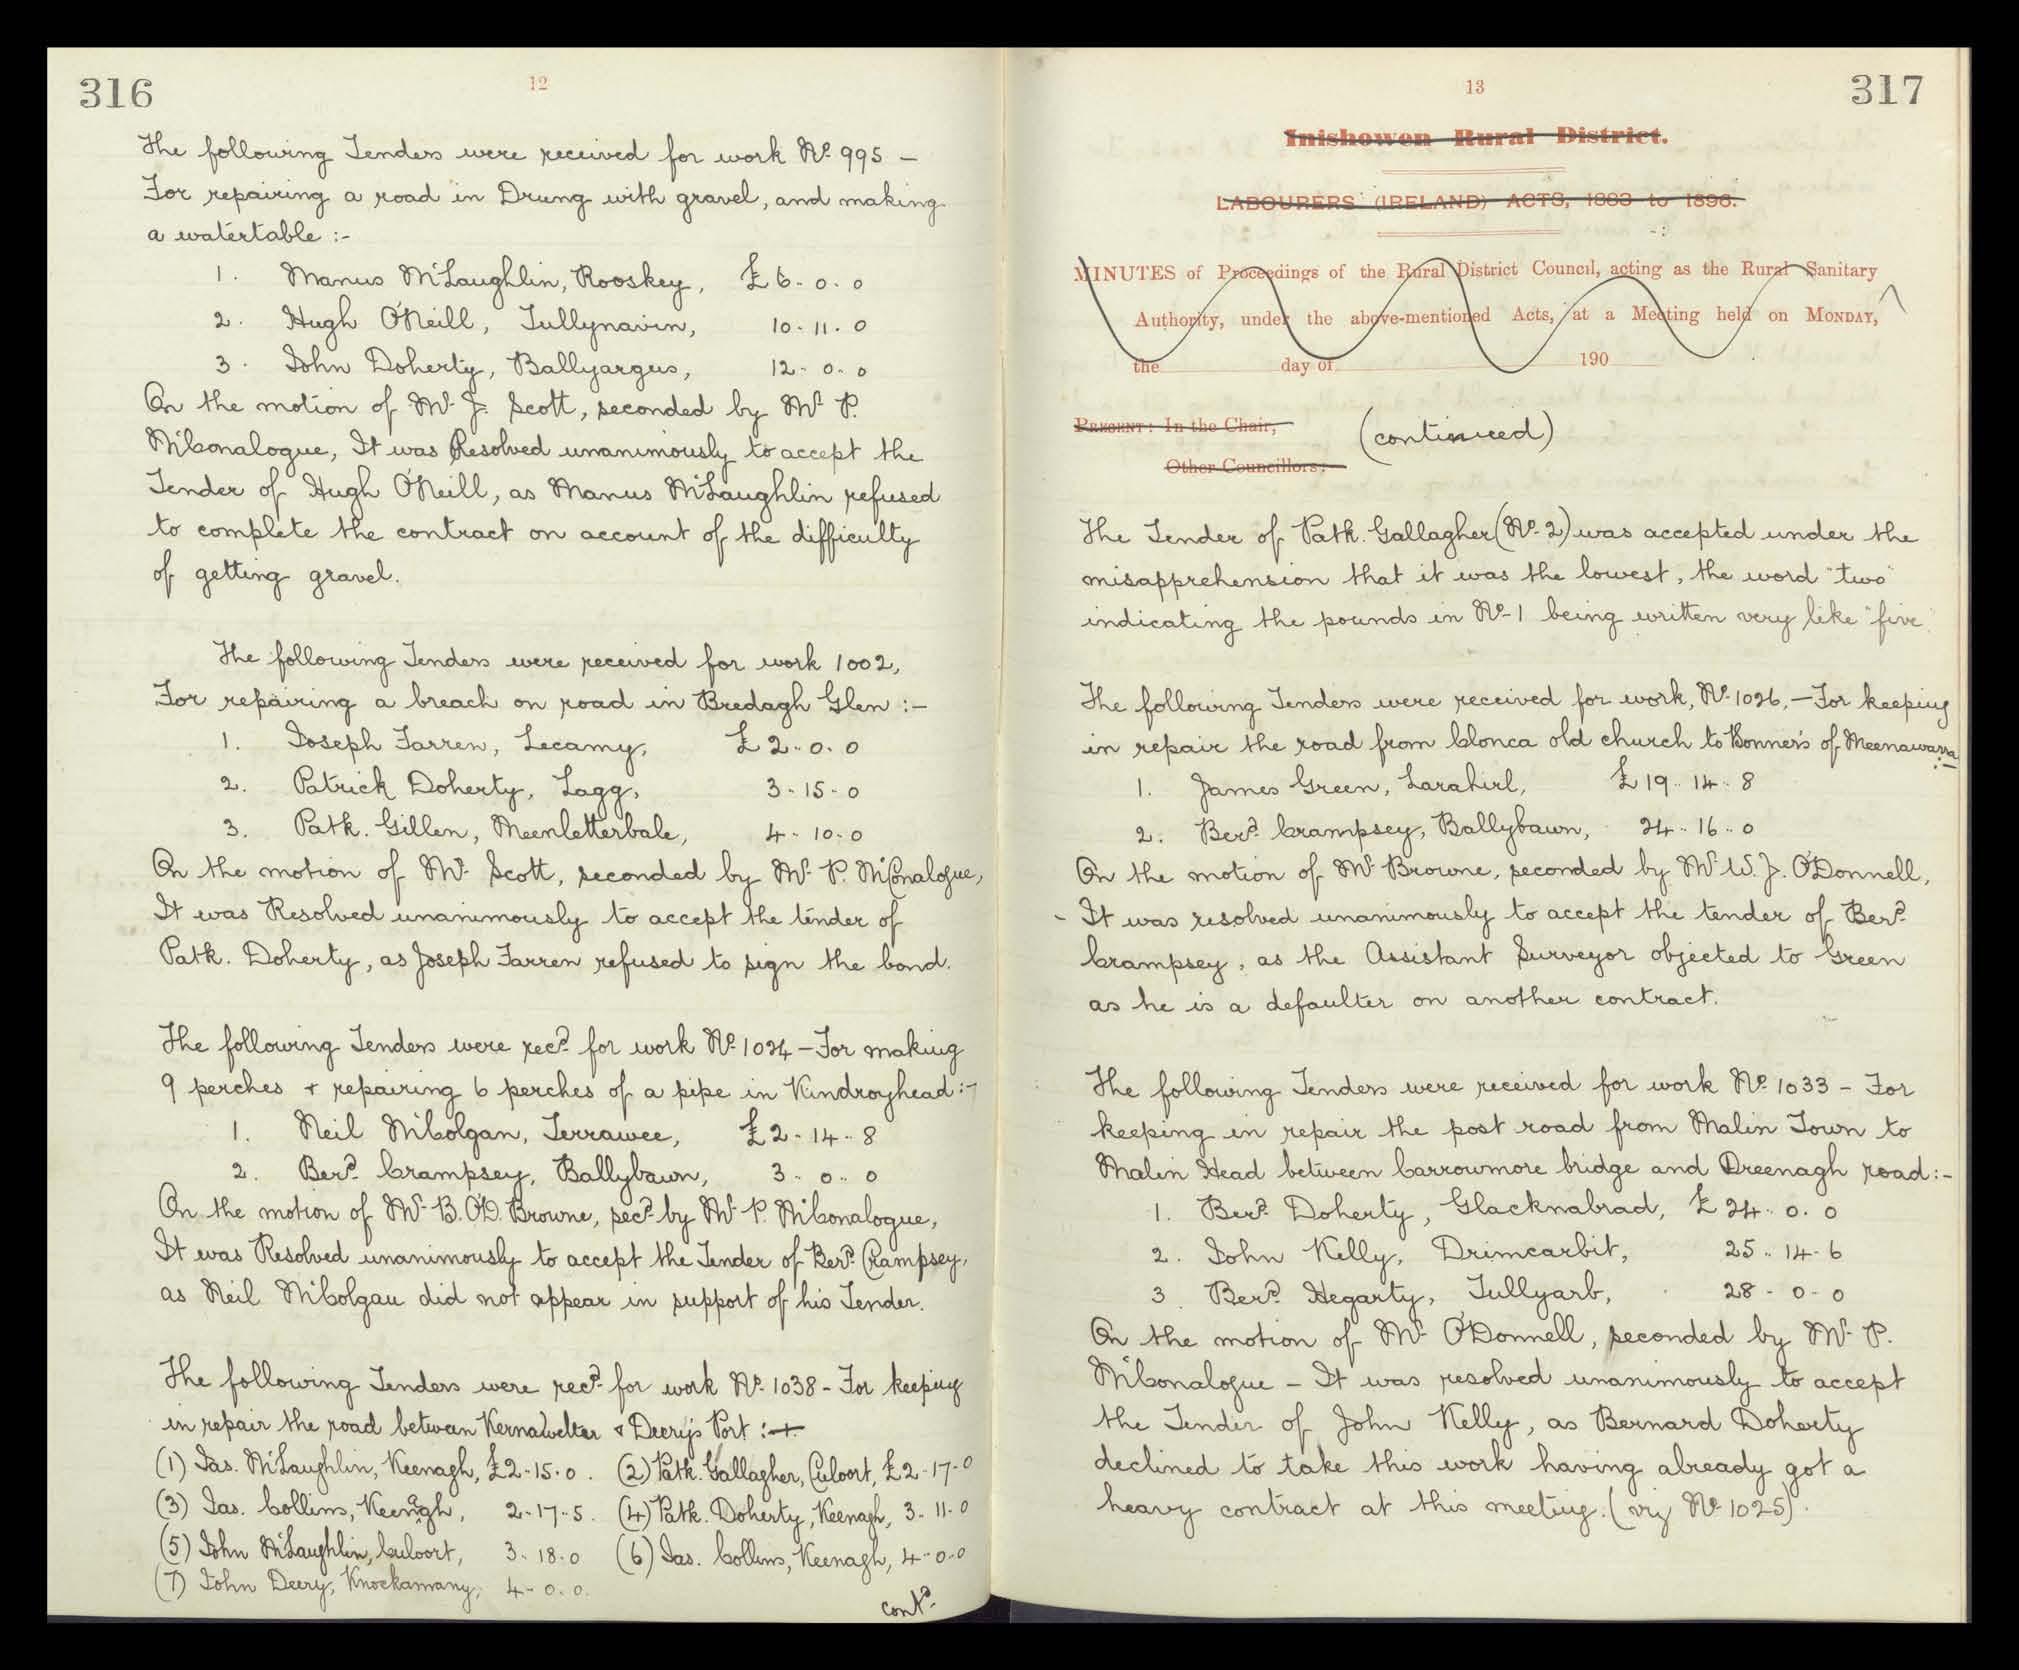 316
12
The following Tenders were received for work No. 995 –
For repairing a road in Drung with gravel, and making
a watertable :-
1. Manus McLaughlin, Rooskey, £6-0-0
2. Hugh O'Neill, Tullynavin, 10-11-0
3. John Doherty, Ballyargus, 12-0-0
On the motion of Mr. J. Scott, seconded by Mr. P.
McConalogue, It was Resolved unanimously to accept the
Tender of Hugh O'Neill, as Manus McLaughlin refused
to complete the contract on account of the difficulty
of getting gravel.
The following Tenders were received for work 1002,
For repairing a breach on road in Bredagh Glen :-
1. Joseph Farren, Lecamy, £2-0-0
2. Patrick Doherty, Lagg, 3-15-0
3. Patk. Gillen, Meenletterbale, 4-10-0
On the motion of Mr. Scott, seconded by Mr. P. McConalogue,
It was Resolved unanimously to accept the tender of
Patk. Doherty, as Joseph Farren refused to sign the bond.
The following Tenders were recd. for work No. 1024 – For making
9 perches & repairing 6 perches of a pipe in Kindroyhead :-
1. Neil McColgan, Terrawee, £2-14-8
2. Berd. Crampsey, Ballybawn, 3-0-0
On the motion of Mr. B. O'D. Browne, secd. by Mr. P. McConalogue,
It was Resolved unanimously to accept the Tender of Berd. Crampsey,
as Neil McColgan did not appear in support of his Tender.
The following Tenders were recd. for work No. 1038 – For keeping
in repair the road between Kernawelter & Deery's Port :-
(1) Jas. McLaughlin, Keenagh, £2-15-0. (2) Patk. Gallagher, Culoort, £2-17-0
(3) Jas. Collins, Keenagh, 2-17-5. (4) Patk. Doherty, Keenagh, 3-11-0
(5) John McLaughlin, Culoort, 3-18-0 (6) Jas. Collins, Keenagh, 4-0-0
(7) John Deery, Knockamany, 4-0-0.
contd.
13
317
Inishowen Rural District.
LABOURERS (IRELAND) ACTS, 1883 to 1896.
MINUTES of Proceedings of the Rural District Council, acting as the Rural Sanitary
Authority, under the above-mentioned Acts, at a Meeting held on MONDAY,
the day of 190
PRESENT: In the Chair,
(continued)
Other Councillors:
The Tender of Patk. Gallagher (No. 2) was accepted under the
misapprehension that it was the lowest, the word "two"
indicating the pounds in No. 1 being written very like "five"
The following Tenders were received for work, No. 1026, – For keeping
in repair the road from Clonca old church to Bonner's of Meenawarra
1. James Green, Larahirl, £19-14-8
2. Berd. Crampsey, Ballybawn, 24-16-0
On the motion of Mr. Browne, seconded by Mr. W. J. O'Donnell,
- It was resolved unanimously to accept the tender of Berd.
Crampsey, as the Assistant Surveyor objected to Green
as he is a defaulter on another contract.
The following Tenders were received for work No. 1033 – For
keeping in repair the post road from Malin Town to
Malin Head between Carrowmore bridge and Dreenagh road :-
1. Berd. Doherty, Glacknabrad, £24-0-0
2. John Kelly, Drimcarbit, 25-14-6
3. Berd. Hegarty, Tullyarb, 28-0-0
On the motion of Mr. O'Donnell, seconded by Mr. P.
McConalogue – It was resolved unanimously to accept
the Tender of John Kelly, as Bernard Doherty
declined to take this work having already got a
heavy contract at this meeting. (viz No. 1025).